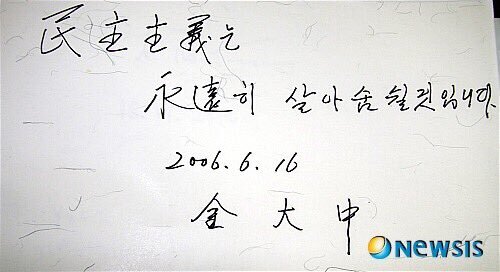 民主主義는
永遠히 살아 숨쉴것입니다.
2006. 6. 16
金大中
newsis